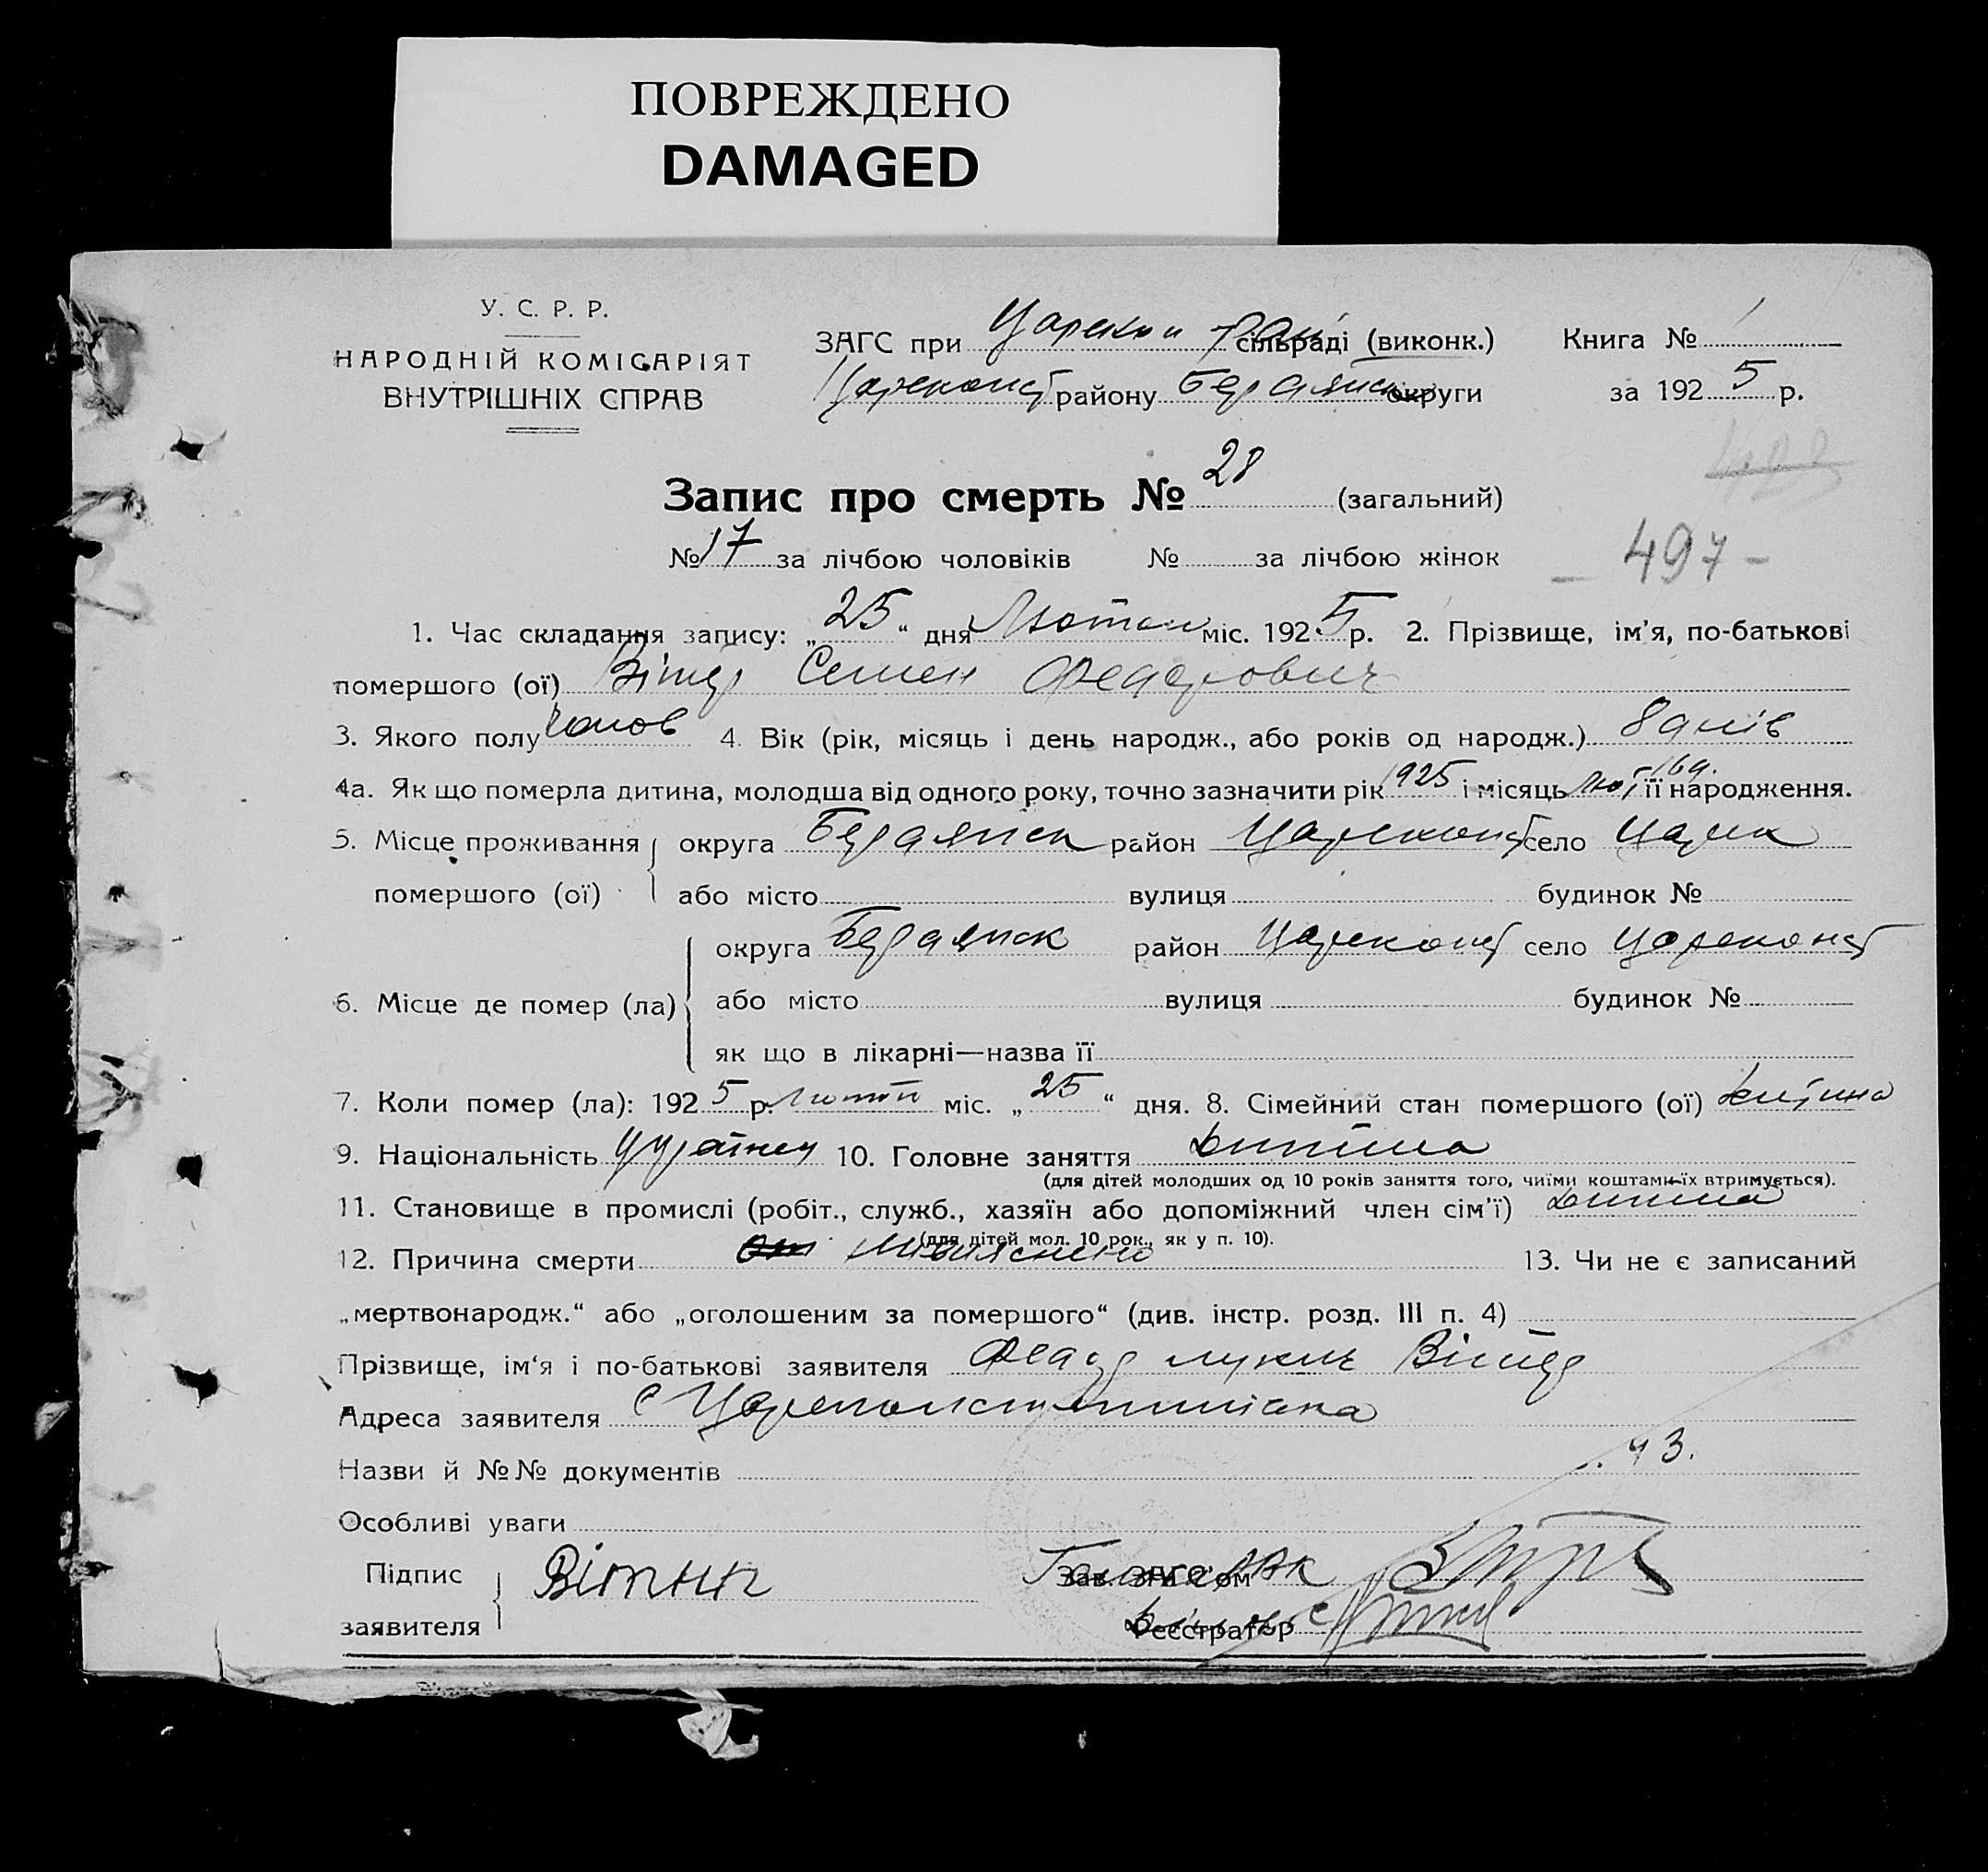 ПОВРЕЖДЕНО
DAMAGED
У. С. Р. Р.
НАРОДНІЙ КОМІСАРІЯТ
ВНУТРІШНІХ СПРАВ
ЗАГС при Царекон рай сільраді (виконк.)
Цареконст району Бердянськ округи
Книга №
за 1925 р.
Запис про смерть № 28 (загальний)
№ 17 за лічбою чоловіків № за лічбою жінок
— 497 —
1. Час складання запису: „25“ дня Лютого міс. 1925 р. 2. Прізвище, ім'я, по-батькові
помершого (ої) Вітер Семен Федорович
3. Якого полу чолов 4. Вік (рік, місяць і день народж., або років од народж.) 8 днів
4а. Як що померла дитина, молодша від одного року, точно зазначити рік 1925 і місяць Лют 16д. її народження.
5. Місце проживання помершого (ої) округа Бердянськ район Цареконст село Царек
або місто вулиця будинок №
6. Місце де помер (ла) округа Бердянск район Цареконст село Цареконст
або місто вулиця будинок №
як що в лікарні—назва її
7. Коли помер (ла): 1925 р. Лютий міс. „25“ дня. 8. Сімейний стан помершого (ої) дитина
9. Національність 10. Головне заняття дитина
(для дітей молодших од 10 років заняття того, чиїми коштами їх втримується).
11. Становище в промислі (робіт., служб., хазяїн або допоміжний член сім'ї) дитина
(для дітей мол. 10 рок., як у п. 10).
12. Причина смерти 13. Чи не є записаний
„мертвонародж.“ або „оголошеним за помершого“ (див. інстр. розд. III п. 4)
Прізвище, ім'я і по-батькові заявителя Федор Вітер
Адреса заявителя с Царекостянтинівка
Назви й №№ документів
ч 3.
Особливі уваги
Підпис заявителя
Зав. ЗАГС'ом
Реєстратор